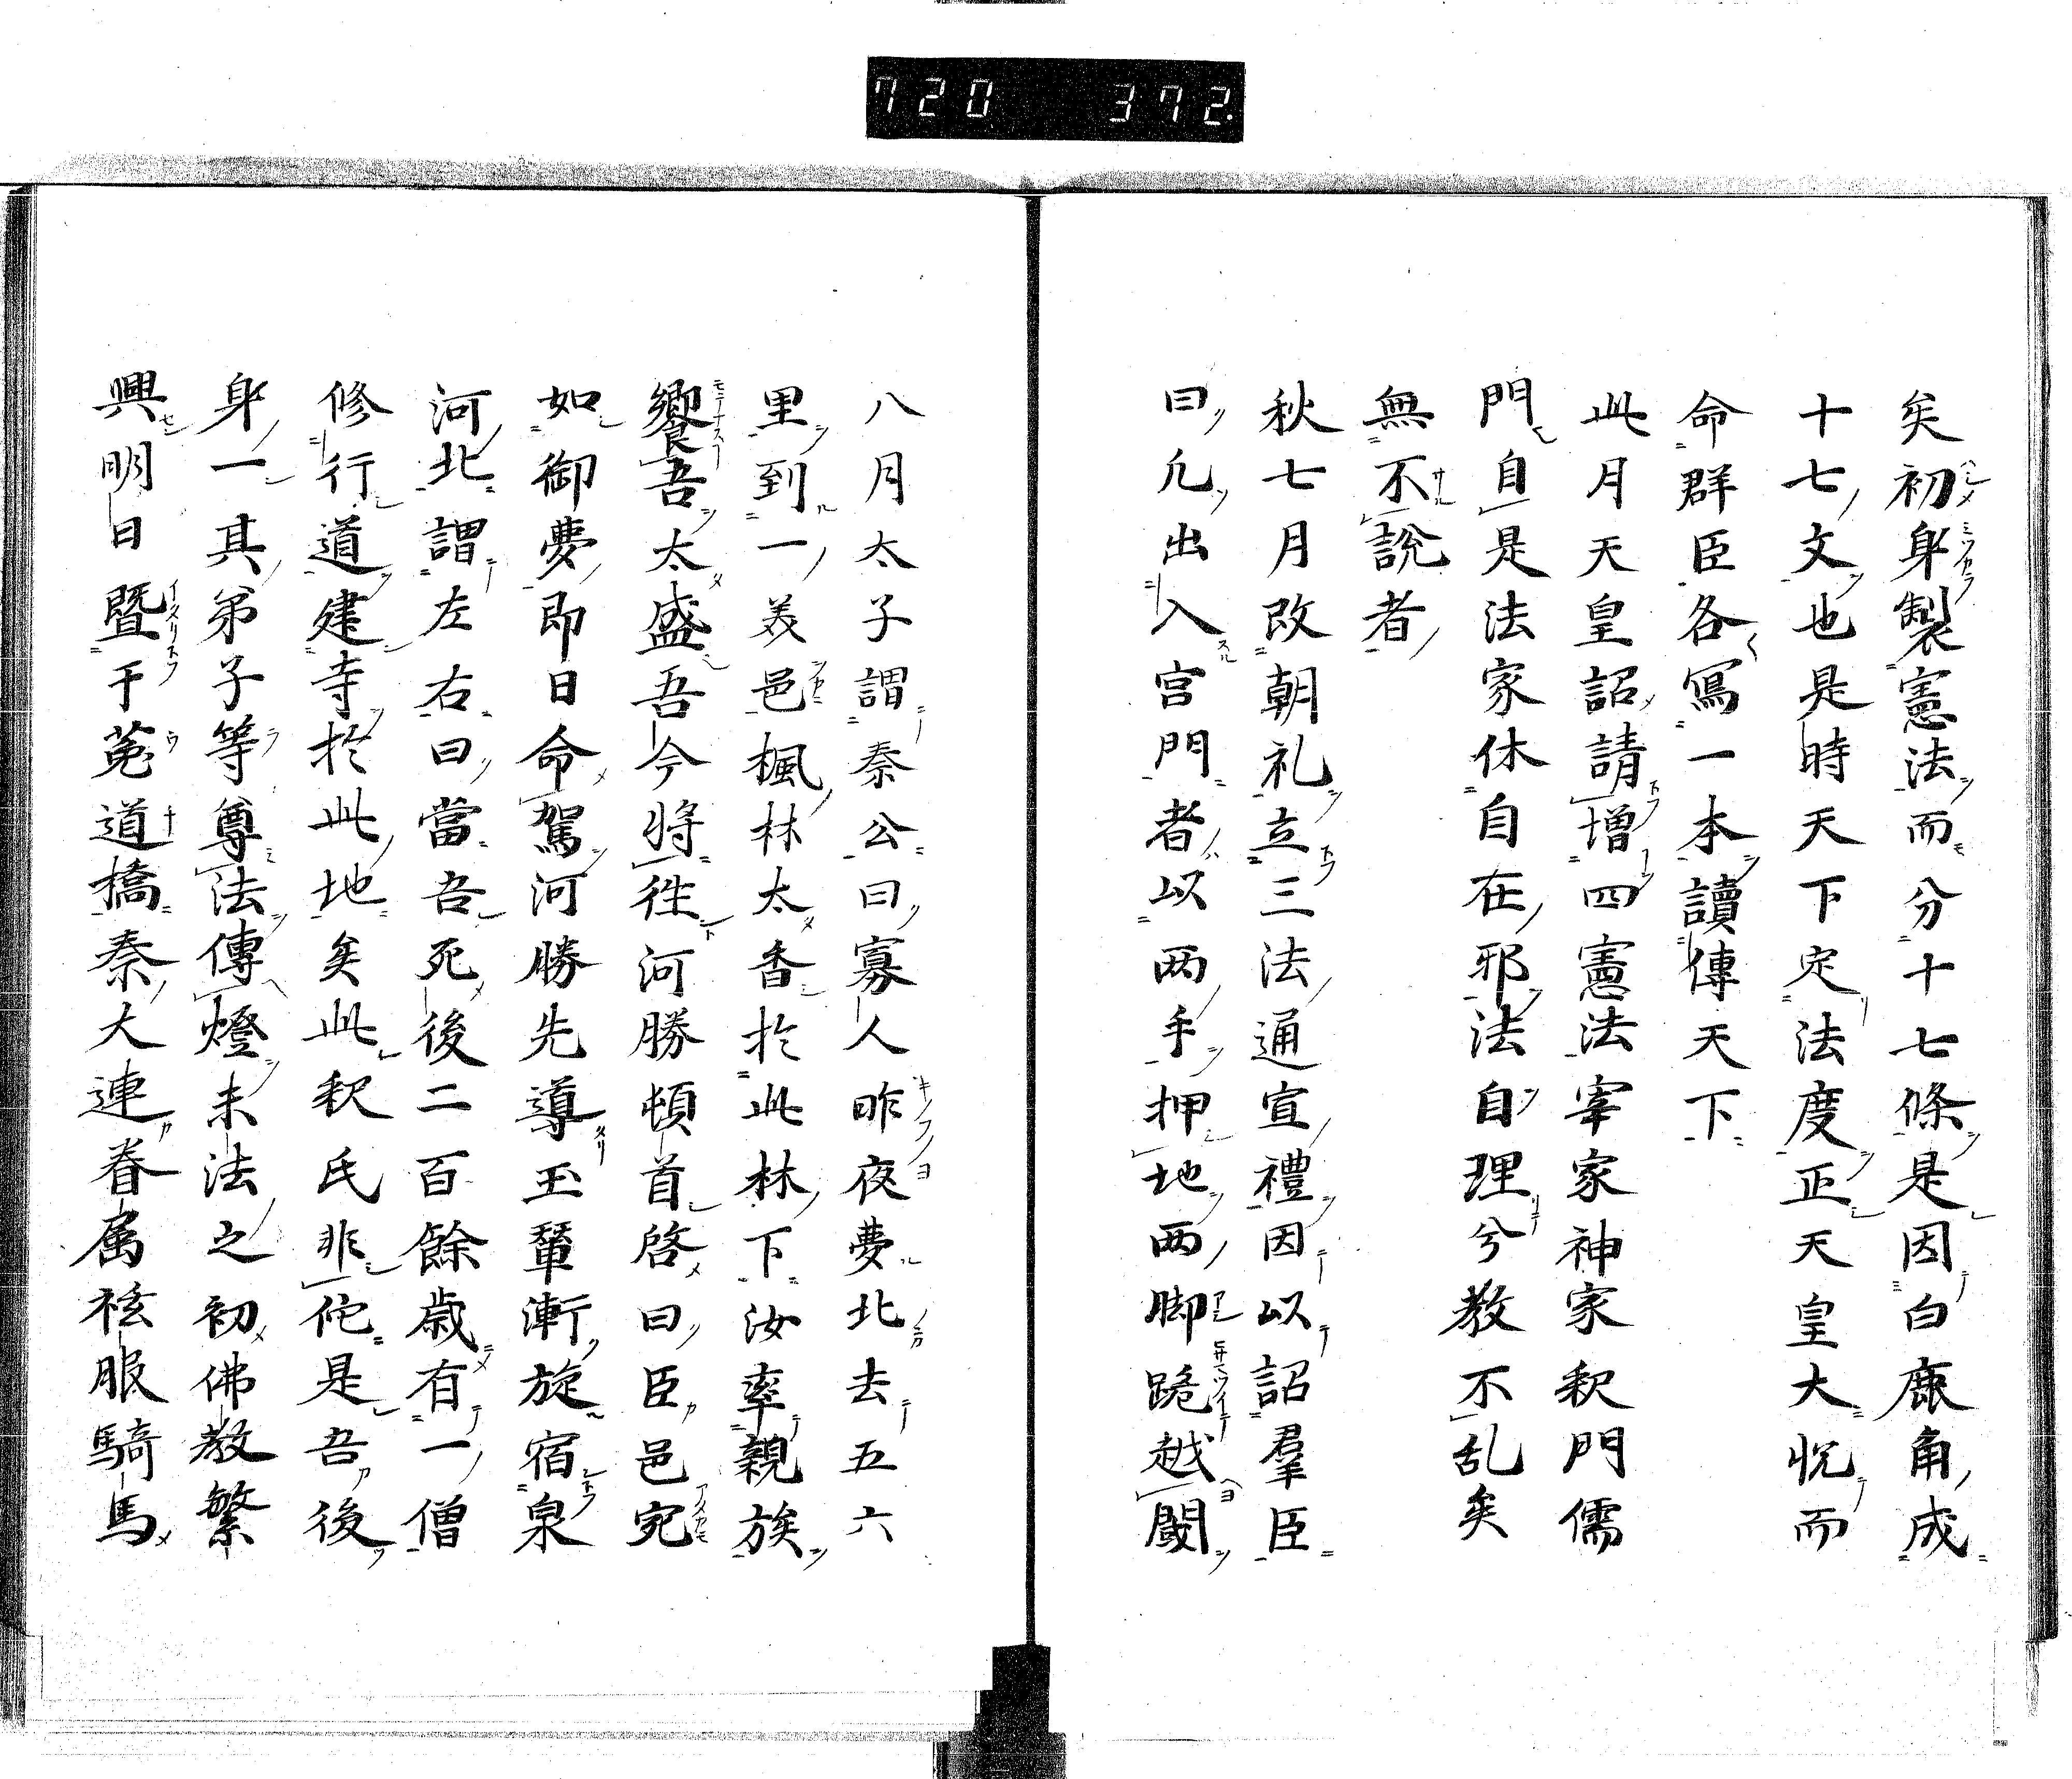 720 372.
矣初身製憲法而分十七條是因白鹿角成
十七文也是時天下定法度正天皇大悦而
命群臣各冩一本讀傳天下
此月天皇詔請増四憲法宰家神家釈門儒
門自是法家休自在邪法自理兮教不乱矣
無不説者
秋七月改朝礼立三法通宣禮因以詔羣臣
曰凢出入宮門者以兩手押地兩脚跪越閾
八月太子謂秦公曰寡人昨夜夢北去五六
里到一美邑楓林太香於此林下汝率親族
饗吾太盛吾今将徃河勝頓首啓曰臣邑宛
如御夢即日命駕河勝先導玉輦漸旋宿泉
河北謂左右曰當吾死後二百餘歳有一僧
修行道建寺於此地矣此釈氏非佗是吾後
身一其弟子等尊法傳燈末法之初佛教繁
興明日曁于菟道橋秦大連眷属袨服騎馬